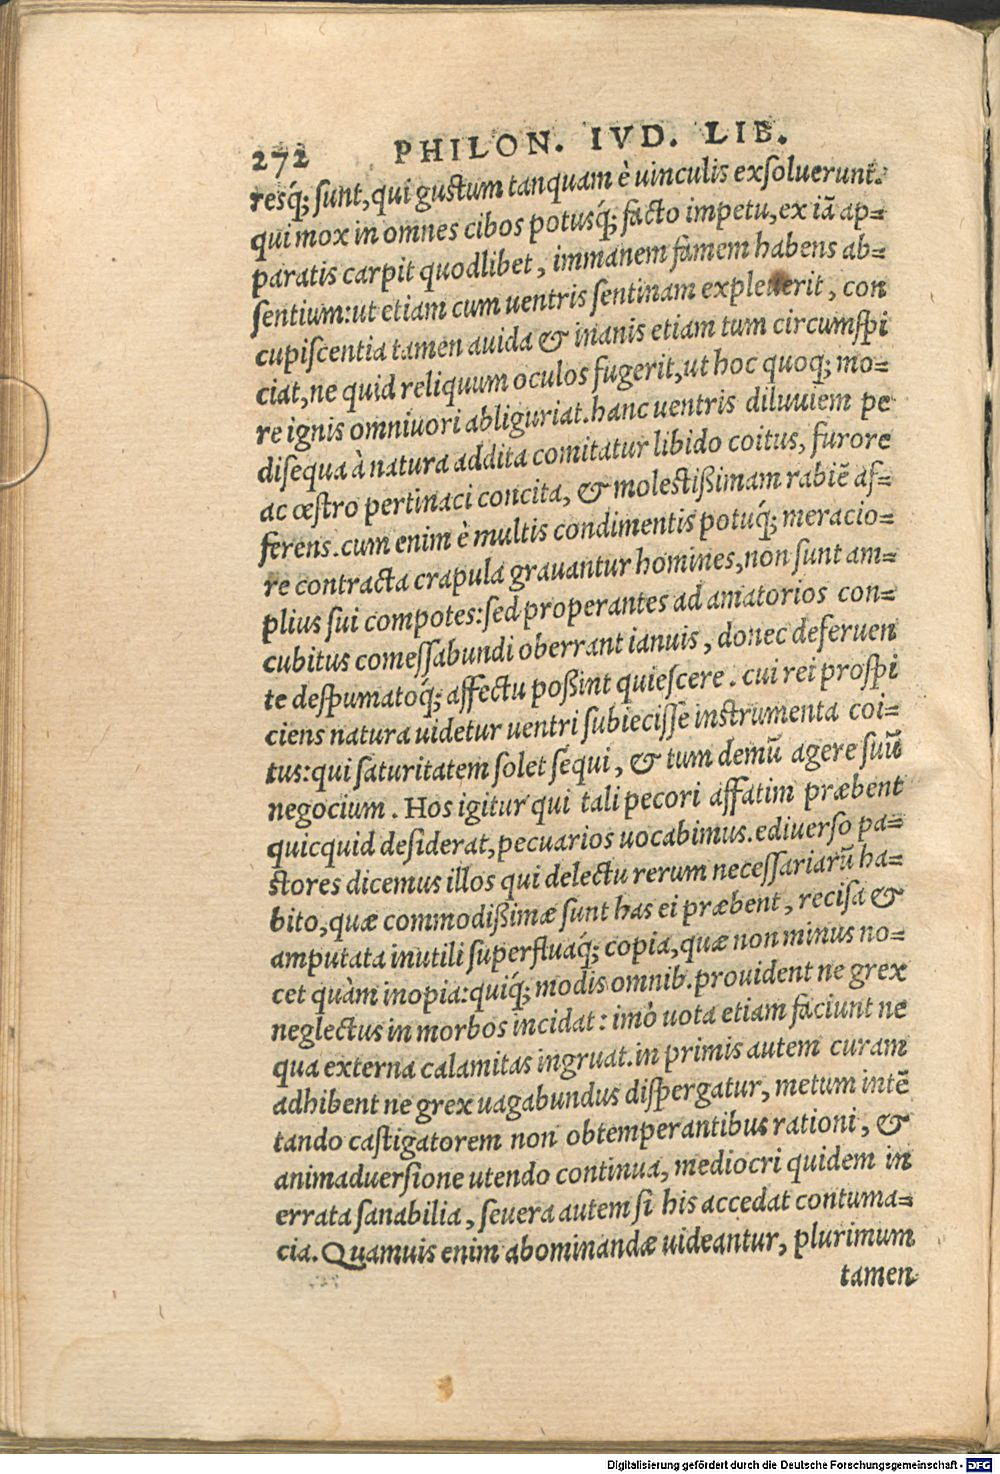 272 PHILON. IVD. LIB.
resq́; sunt, qui gustum tanquam è uinculis exsoluerunt.
qui mox in omnes cibos potusq́; facto impetu, ex iā ap=
paratis carpit quodlibet, immanem famem habens ab=
sentium: ut etiam cum uentris sentinam expleuerit, con
cupiscentia tamen auida & inanis etiam tum circumspi
ciat, ne quid reliquum oculos fugerit, ut hoc quoq; mo=
re ignis omniuori abliguriat. hanc uentris diluuiem pe
disequa à natura addita comitatur libido coitus, furore
ac œstro pertinaci concita, & molestißimam rabiē af=
ferens. cum enim è multis condimentis potuq́; meracio=
re contracta crapula grauantur homines, non sunt am=
plius sui compotes: sed properantes ad amatorios con=
cubitus comessabundi oberrant ianuis, donec deferuen
te despumatoq́; affectu poßint quiescere. cui rei prospi
ciens natura uidetur uentri subiecisse instrumenta coi=
tus: qui saturitatem solet sequi, & tum demū agere suū
negocium. Hos igitur qui tali pecori affatim præbent
quicquid desiderat, pecuarios uocabimus. ediuerso pa=
stores dicemus illos qui delectu rerum necessariarū ha=
bito, quæ commodißimæ sunt has ei præbent, recisa &
amputata inutili superfluaq́; copia, quæ non minus no=
cet quàm inopia: quiq́; modis omnib. prouident ne grex
neglectus in morbos incidat: imò uota etiam faciunt ne
qua externa calamitas ingruat. in primis autem curam
adhibent ne grex uagabundus dispergatur, metum intē
tando castigatorem non obtemperantibus rationi, &
animaduersione utendo continua, mediocri quidem in
errata sanabilia, seuera autem si his accedat contuma=
cia. Quamuis enim abominandæ uideantur, plurimum
tamen
Digitalisierung gefördert durch die Deutsche Forschungsgemeinschaft - DFG